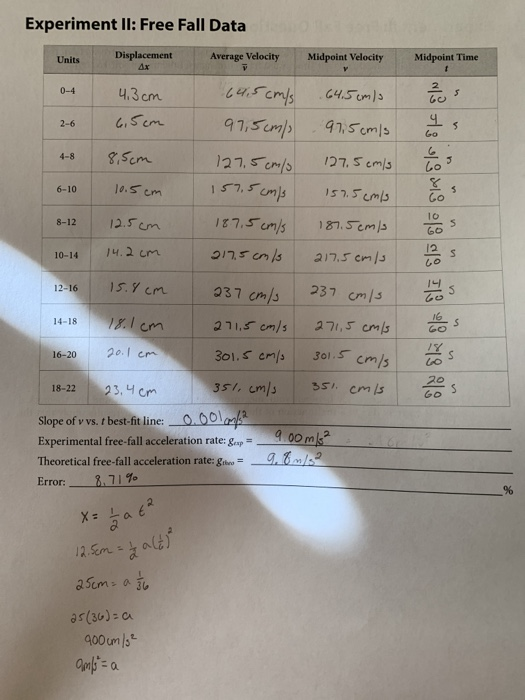 Experiment II: Free Fall Data
Units Displacement Δx Average Velocity v̄ Midpoint Velocity v Midpoint Time t
0–4 4.3 cm 64.5 cm/s 64.5 cm/s 2/60 s
2–6 6.5 cm 97.5 cm/s 97.5 cm/s 4/60 s
4–8 8.5cm 127.5 cm/s 127.5 cm/s 6/60 s
6–10 10.5 cm 157.5 cm/s 157.5 cm/s 8/60 s
8–12 12.5 cm 187.5 cm/s 187.5 cm/s 10/60 s
10–14 14.2 cm 217.5 cm/s 217.5 cm/s 12/60 s
12–16 15.8 cm 237 cm/s 237 cm/s 14/60 s
14–18 18.1 cm 271.5 cm/s 271.5 cm/s 16/60 s
16–20 20.1 cm 301.5 cm/s 301.5 cm/s 18/60 s
18–22 23.4 cm 351. cm/s 351. cm/s 20/60 s
Slope of v vs. t best-fit line: 0.001 cm/s²
Experimental free-fall acceleration rate: g_exp = 9.00 m/s²
Theoretical free-fall acceleration rate: g_theo = 9.8 m/s²
Error: 8.71% %
x = 1/2 a t²
12.5cm = 1/2 a(1/6)²
25cm = a 1/36
25(36) = a
900 cm/s²
9m/s² = a